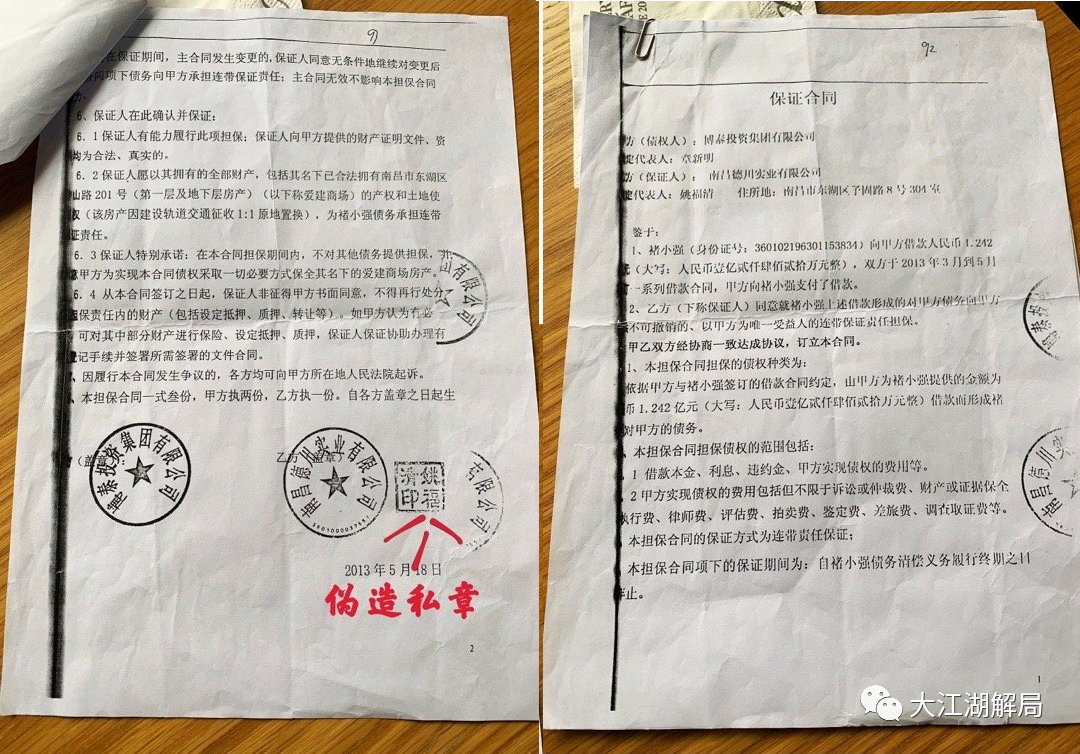 91
在保证期间，主合同发生变更的，保证人同意无条件地继续对变更后
合同项下债务向甲方承担连带保证责任；主合同无效不影响本担保合同
6、保证人在此确认并保证：
6.1 保证人有能力履行此项担保；保证人向甲方提供的财产证明文件、资
均为合法、真实的。
6.2 保证人愿以其拥有的全部财产，包括其名下已合法拥有南昌市东湖区
山路 201 号（第一层及地下层房产）（以下称爱建商场）的产权和土地使
权（该房产因建设轨道交通征收 1:1 原地置换），为褚小强债务承担连带
证责任。
6.3 保证人特别承诺：在本合同担保期间内，不对其他债务提供担保，并
意甲方为实现本合同债权采取一切必要方式保全其名下的爱建商场房产。
6.4 从本合同签订之日起，保证人非征得甲方书面同意，不得再行处分
保责任内的财产（包括设定抵押、质押、转让等）。如甲方认为有必
可对其中部分财产进行保险、设定抵押、质押，保证人保证协助办理有
登记手续并签署所需签署的文件合同。
、因履行本合同发生争议的，各方均可向甲方所在地人民法院起诉。
、本担保合同一式叁份，甲方执两份，乙方执一份。自各方盖章之日起生
（盖章）：
乙方（盖章）
博泰投资集团有限公司
南昌德川实业有限公司
姚福清印
有限公司
有限公司
2013 年 5 月 18 日
伪造私章
2
92
保证合同
方（债权人）：博泰投资集团有限公司
定代表人：章新明
方（保证人）：南昌德川实业有限公司
定代表人：姚福清 住所地：南昌市东湖区子固路 8 号 304 室
鉴于：
1、褚小强（身份证号：360102196301153834）向甲方借款人民币 1.242
（大写：人民币壹亿贰仟肆佰贰拾万元整），双方于 2013 年 3 月到 5 月
一系列借款合同，甲方向褚小强支付了借款。
2、乙方（下称保证人）同意就褚小强上述借款形成的对甲方债务向甲方
不可撤销的、以甲方为唯一受益人的连带保证责任担保。
甲乙双方经协商一致达成协议，订立本合同。
1、本担保合同担保的债权种类为：
依据甲方与褚小强签订的借款合同约定，由甲方为褚小强提供的金额为
币 1.242 亿元（大写：人民币壹亿贰仟肆佰贰拾万元整）借款而形成褚
对甲方的债务。
、本担保合同担保债权的范围包括：
1 借款本金、利息、违约金、甲方实现债权的费用等。
2 甲方实现债权的费用包括但不限于诉讼或仲裁费、财产或证据保全
执行费、律师费、评估费、拍卖费、鉴定费、差旅费、调查取证费等。
本担保合同的保证方式为连带责任保证；
本担保合同项下的保证期间为：自褚小强债务清偿义务履行终期之日
年止。
泰投
南昌德川实业
1
大江湖解局